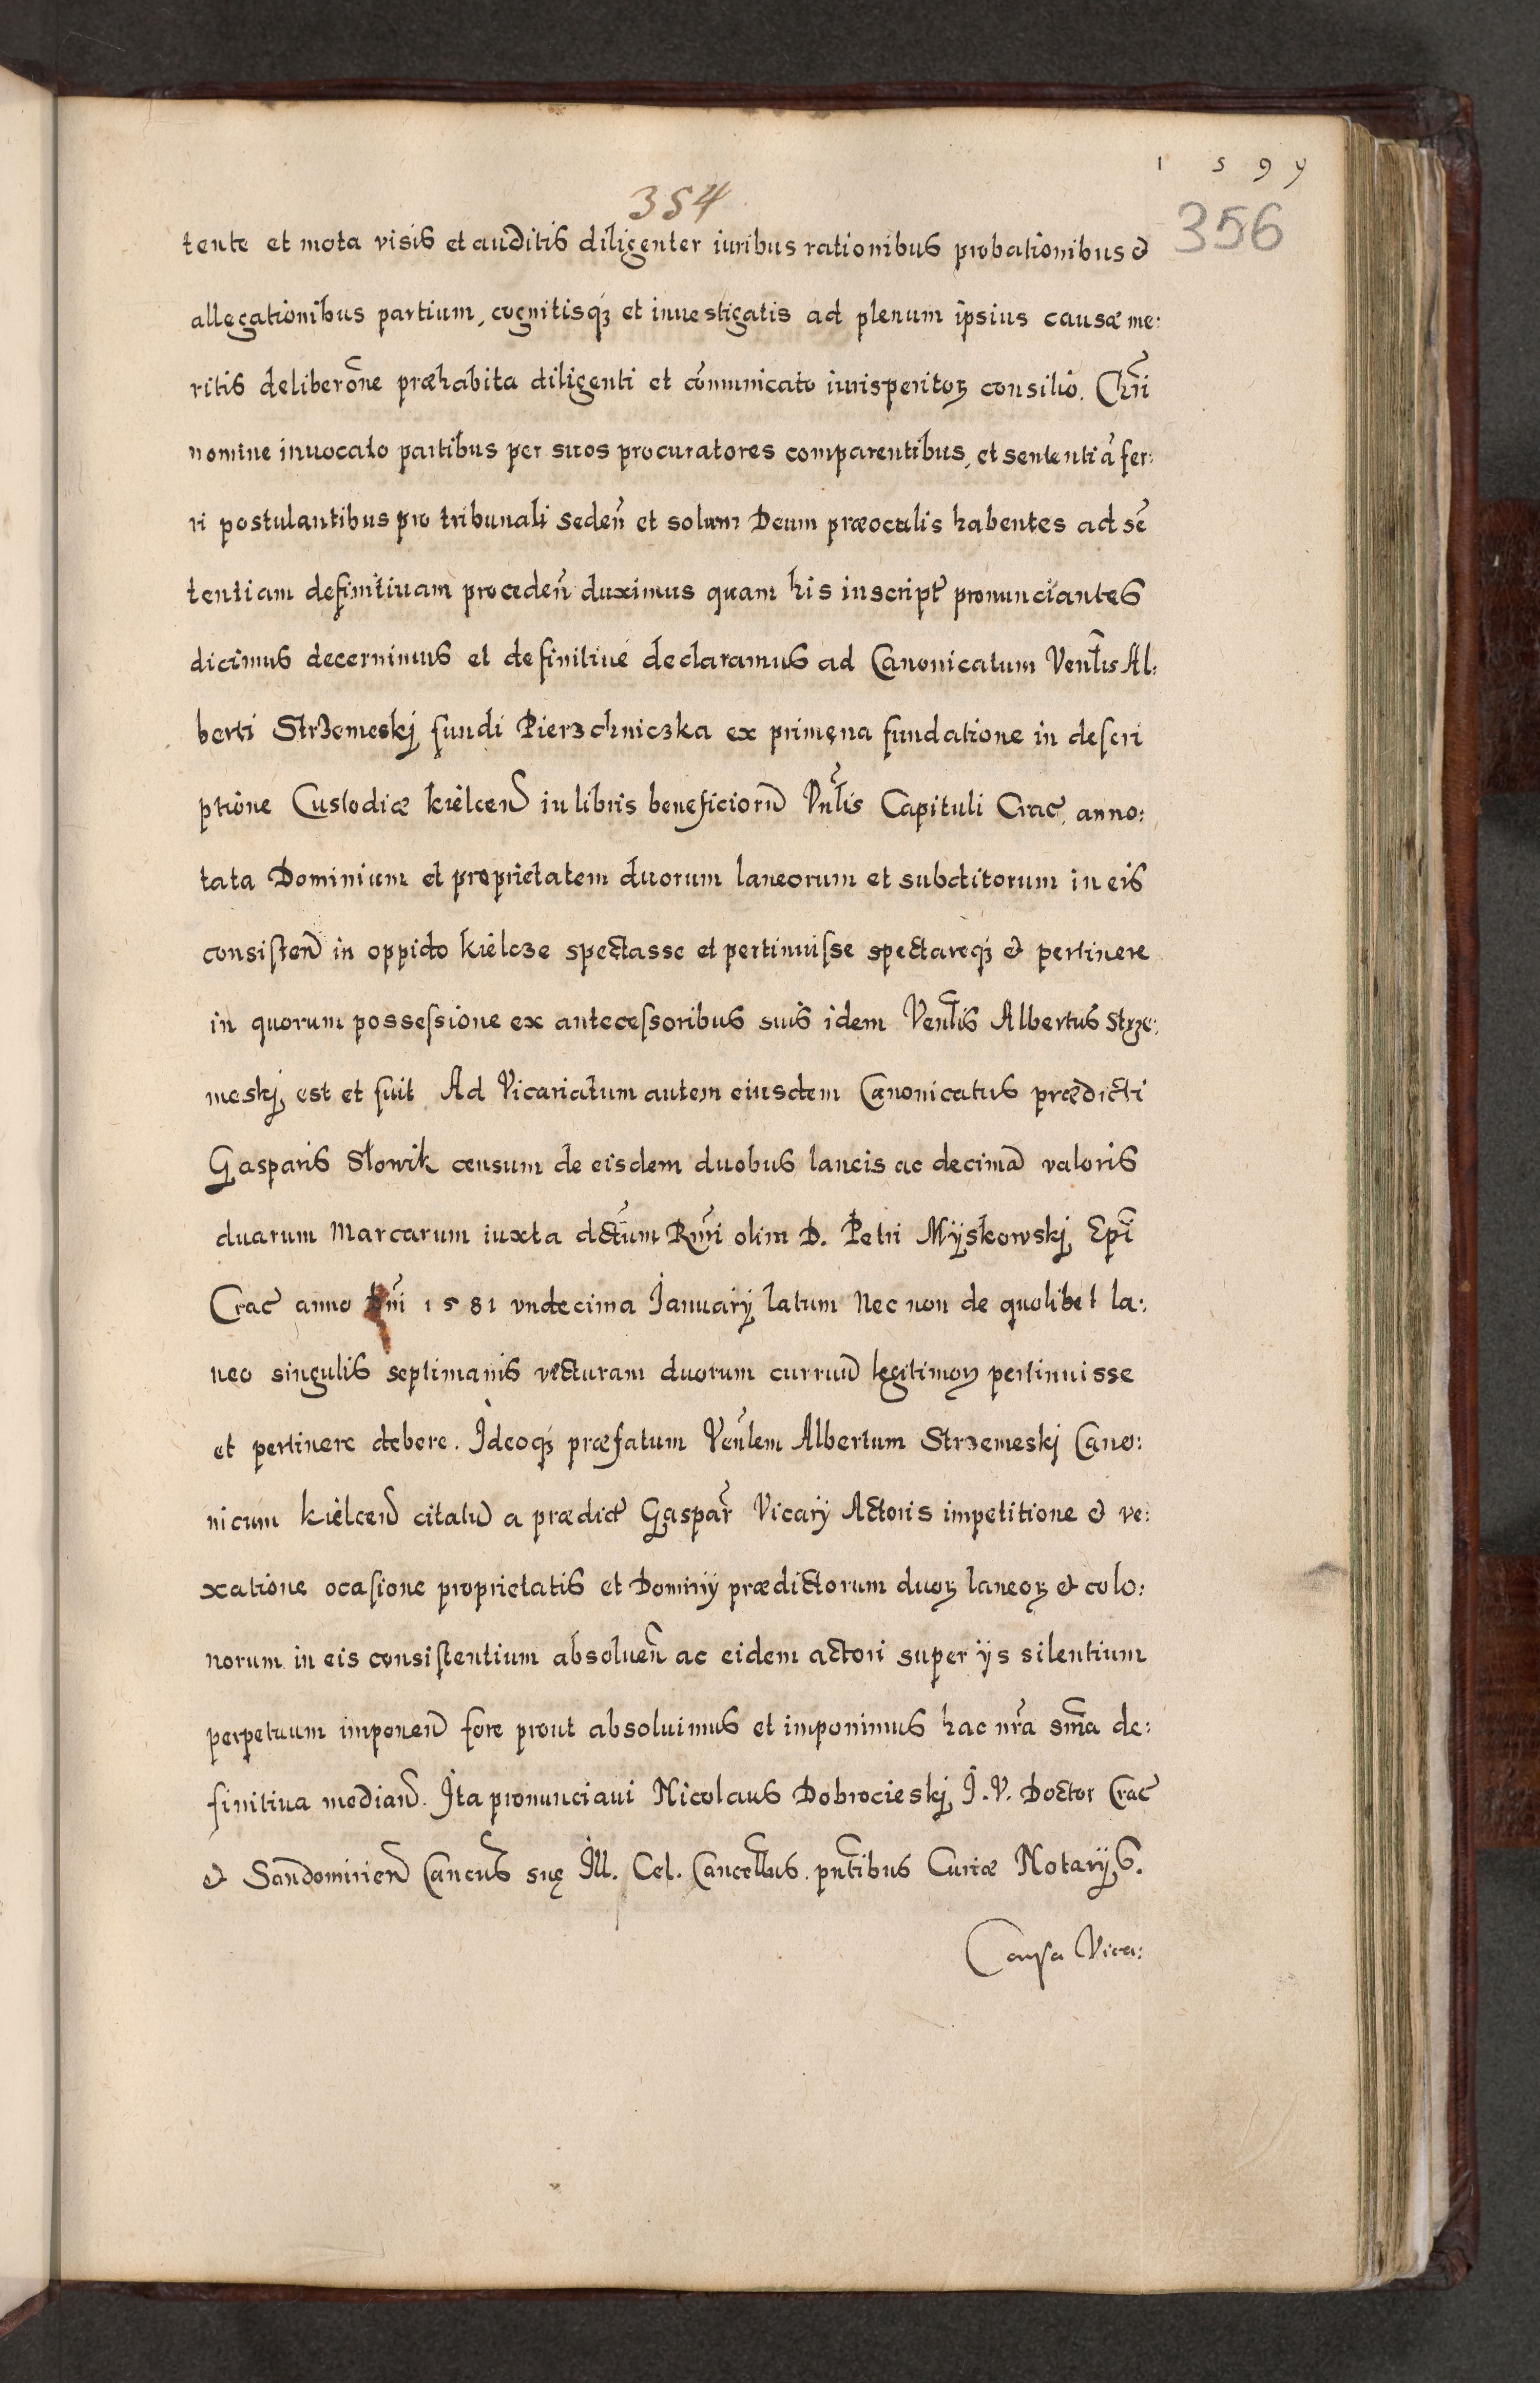 1 5 9 9
354
356
tente et mota visis et auditis diligenter iuribus rationibus probationibus &
allegationibus partium, cognitisqȝ et inuestigatis ad plenum ipsius causæ me:
ritis deliberõne præhabita diligenti et cõmunicato iurisperitoꝝ consilio. Chri
nomine inuocato partibus per suos procuratores comparentibus, et sententiã fer:
ri postulantibus pro tribunali seden̄ et solum Deum præoculis habentes ad sē
tentiam definitiuam proceden̄ duximus quam his inscript̄ pronunciantes
dicimus decernimus et definitiué declaramus ad Canonicatum Ven̄lis Al:
berti Strzemeskj fundi Pierzchniczka ex primęua fundatione in descri
ptione Custodiæ kielceñ in libris beneficiorũ Vn̄lis Capituli Crac̄, anno:
tata Dominium et proprietatem duorum laneorum et subditorum in eis
consisteñ in oppido kielcze spectasse et pertinuisse spectareqȝ & pertinere
in quorum possessione ex antecessoribus suis idem Ven̄lis Albertus Strze:
meskj, est et fuit. Ad Vicariatum autem eiusdem Canonicatus prædicti
Gasparis Słowik censum de eisdem duobus laneis ac decimã valoris
duarum Marcarum iuxta dctūm Rm̄i olim D. Petri Myskowskj, Ep̄i
Crac̄ anno Dn̄i 1581 vndecima Januarÿ latum Nec non de quolibet la:
neo singulis septimanis vecturam duorum curruũ legitimoꝝ pertinuisse
et pertinere debere. Ideoqȝ præfatum Ven̄lem Albertum Strzemeskj Cano:
nicum kielceñ citatũ a prædict̄ Gaspar̄ Vicarÿ Actoris impetitione & ve:
xatione ocasione proprietatis et Dominÿ prædictorum duoꝝ laneoꝝ & colo:
norum in eis consistentium absoluen̄ ac eidem actori super ÿs silentium
perpetuum imponeñ fore prout absoluimus et imponimus hac nr̄a sm̄a de:
finitiua mediañ. Ita pronunciaui Nicolaus Dobrocieskj, I.V. Doctor Crac̄
& San̄domirieñ Cancūs suę Ill. Cel. Cancell̄us. pn̄tibus Curiæ Notarÿs.
Causa Vica: